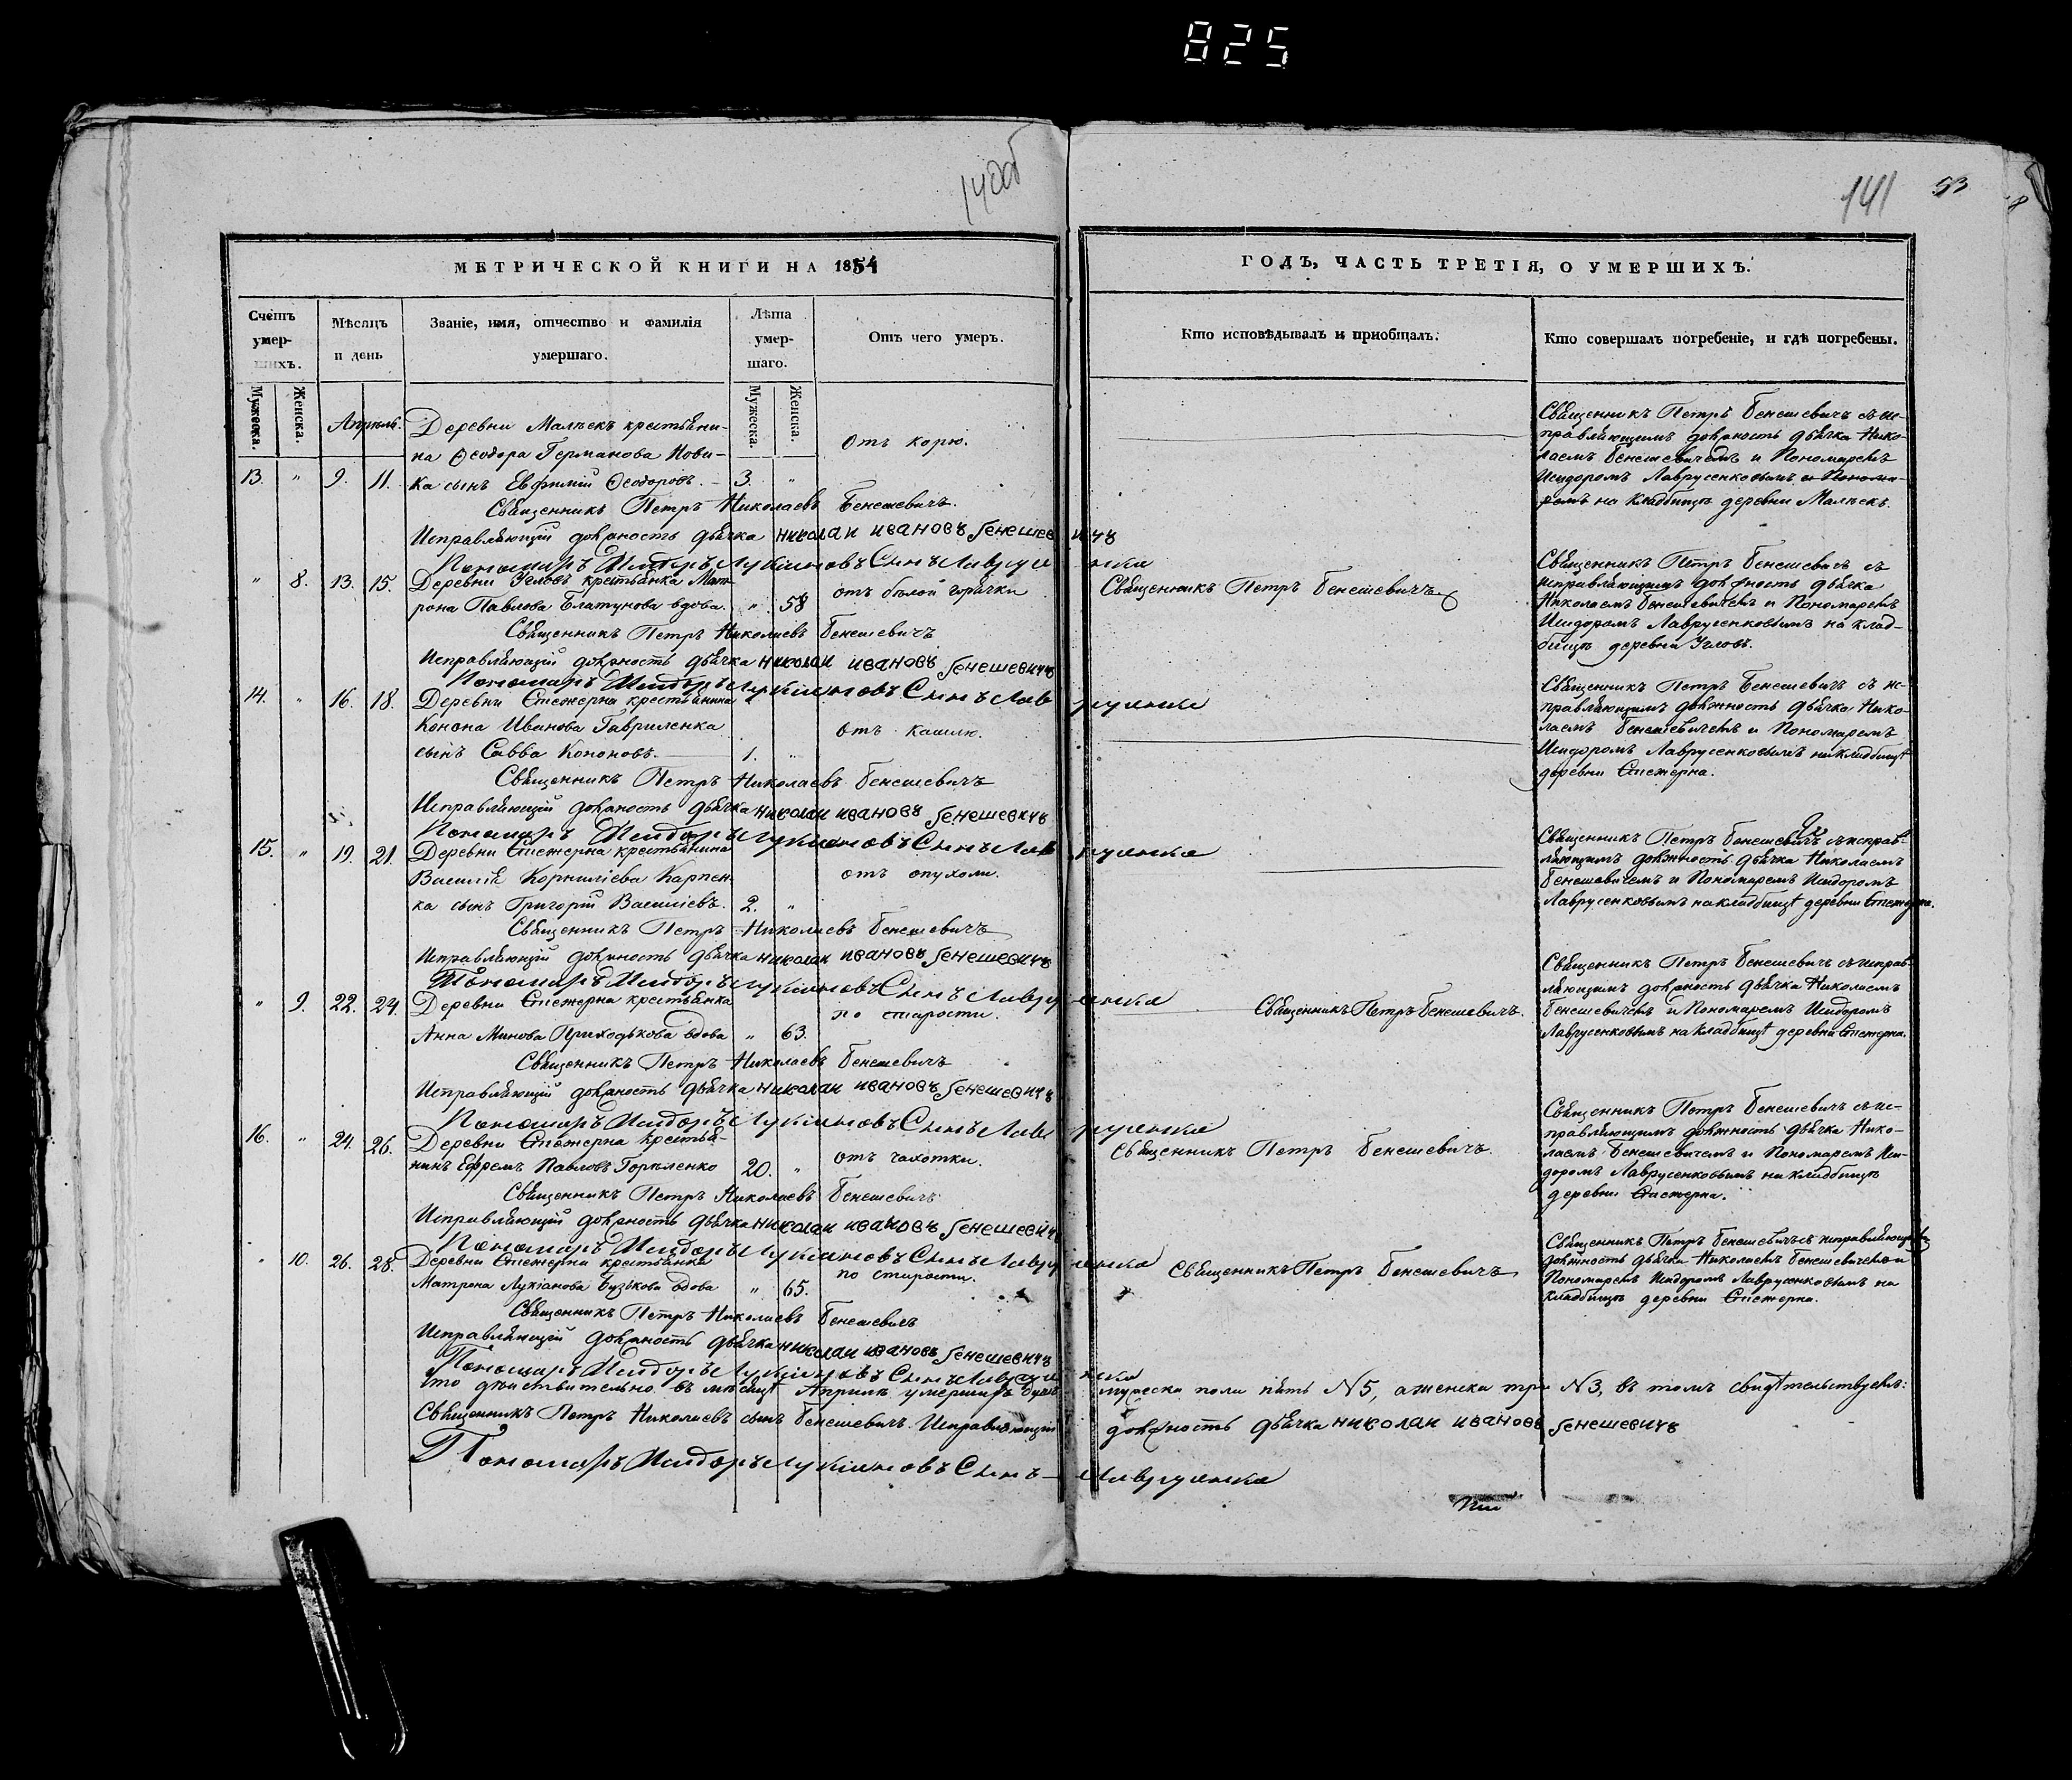 825
140об
141
53
8
МЕТРИЧЕСКОЙ КНИГИ НА 1854
Счетъ умер-шихъ.
Мужеска.
Женска.
Мѣсяцъ и день
Званіе, имя, отчество и фамилія умершаго.
Лѣта умер-шаго.
Мужеска.
Женска.
Отъ чего умеръ.
Апрѣль.
Деревни Малѣекъ крестьяни-
на Ѳеодора Германова Нови-
13. " 9. 11. ка сынъ Евфимій Ѳеодоровъ. 3. "
Отъ корю.
Священникъ Петръ Николаевъ Бенешевичъ.
Исправляющій должность дьячка николаи ивановъ бенешевичъ
Пономаръ Исидоръ Лукіяновъ Сынъ Лавруенка
" 8. 13. 15. Деревни Угловъ крестьянка Мат-
рона Павлова Блатунова вдова. " 58
отъ бѣлой горячки
Священникъ Петръ Николаевъ Бенешевичъ
Исправляющій должность дьячка николаи ивановъ бенешевичъ
Пономаръ Исидоръ Лукіяновъ Сынъ Лавруенка
14. " 16. 18. Деревни Стежерна крестьянина
Конона Иванова Гавриленка
сынъ Савва Кононовъ. 1. "
отъ кашлю.
Священникъ Петръ Николаевъ Бенешевичъ
Исправляющій должность дьячка николаи ивановъ бенешевичъ
Пономаръ Исидоръ Лукіяновъ Сынъ Лавруенка
15. " 19. 21. Деревни Стежерна крестьянина
Василія Корниліева Карпен-
ка сынъ Григорій Василіевъ. 2. "
отъ опухоли.
Священникъ Петръ Николаевъ Бенешевичъ
Исправляющій должность дьячка николаи ивановъ бенешевичъ
Пономаръ Исидоръ Лукіяновъ Сынъ Лавруенка
" 9. 22. 24. Деревни Стежерна крестьянка
Анна Минова Приходькова вдова " 63.
по старости.
Священникъ Петръ Николаевъ Бенешевичъ
Исправляющій должность дьячка николаи ивановъ бенешевичъ
Пономаръ Исидоръ Лукіяновъ Сынъ Лавруенка
16. " 24. 26. Деревни Стежерна крестья-
нинъ Ефремъ Павловъ Горѣленко 20. "
отъ чахотки.
Священникъ Петръ Николаевъ Бенешевичъ
Исправляющій должность дьячка николаи ивановъ бенешевичъ
Пономаръ Исидоръ Лукіяновъ Сынъ Лавруенка
" 10. 26. 28. Деревни Стежерна крестьянка
Матрона Лукіанова Бузькова вдова " 65.
по старости.
Священникъ Петръ Николаевъ Бенешевичъ
Исправляющій должность дьячка николаи ивановъ бенешевичъ
Пономаръ Исидоръ Лукіяновъ Сынъ Лавруенка
Что дѣйствительно въ мѣсяцѣ Априлѣ умершихъ было мужеска пола пять №5, а женска три №3, въ томъ свидѣтельствуемъ:
Священникъ Петръ Николаевъ сынъ Бенешевичъ. Исправляющій должность дьячка николаи ивановъ бенешевичъ
Пономаръ Исидоръ Лукіяновъ Сынъ Лавруенка
ГОДЪ, ЧАСТЬ ТРЕТІЯ, О УМЕРШИХЪ.
Кто исповѣдывалъ и пріобщалъ.
Кто совершалъ погребеніе, и гдѣ погребены.
Священникъ Петръ Бенешевичъ съ ис-
правляющимъ должность дьячка Нико-
лаемъ Бенешевичемъ и Пономаремъ
Исидоромъ Лаврусенковымъ и Понома-
ремъ на кладбищѣ деревни Малѣекъ.
Священникъ Петръ Бенешевичъ
Священникъ Петръ Бенешевичъ съ
исправляющимъ должность дьячка
Николаемъ Бенешевичемъ и Пономаремъ
Исидоромъ Лаврусенковымъ на клад-
бищѣ деревни Угловъ.
Священникъ Петръ Бенешевичъ съ ис-
правляющимъ должность дьячка Нико-
лаемъ Бенешевичемъ и Пономаремъ
Исидоромъ Лаврусенковымъ на кладбищѣ
деревни Стежерна.
Священникъ Петръ Бенешевичъ съ исправ-
ляющимъ должность дьячка Николаемъ
Бенешевичемъ и Пономаремъ Исидоромъ
Лаврусенковымъ на кладбищѣ деревни Стежерна.
Священникъ Петръ Бенешевичъ.
Священникъ Петръ Бенешевичъ съ исправ-
ляющимъ должность дьячка Николаемъ
Бенешевичемъ и Пономаремъ Исидоромъ
Лаврусенковымъ на кладбищѣ деревни Стежерна.
Священникъ Петръ Бенешевичъ.
Священникъ Петръ Бенешевичъ съ ис-
правляющимъ должность дьячка Нико-
лаемъ Бенешевичемъ и Пономаремъ Иси-
доромъ Лаврусенковымъ на кладбищѣ
деревни Стежерна.
Священникъ Петръ Бенешевичъ
Священникъ Петръ Бенешевичъ съ исправляющимъ
должность дьячка Николаемъ Бенешевичемъ и
Пономаремъ Исидоромъ Лаврусенковымъ на
кладбищѣ деревни Стежерна.